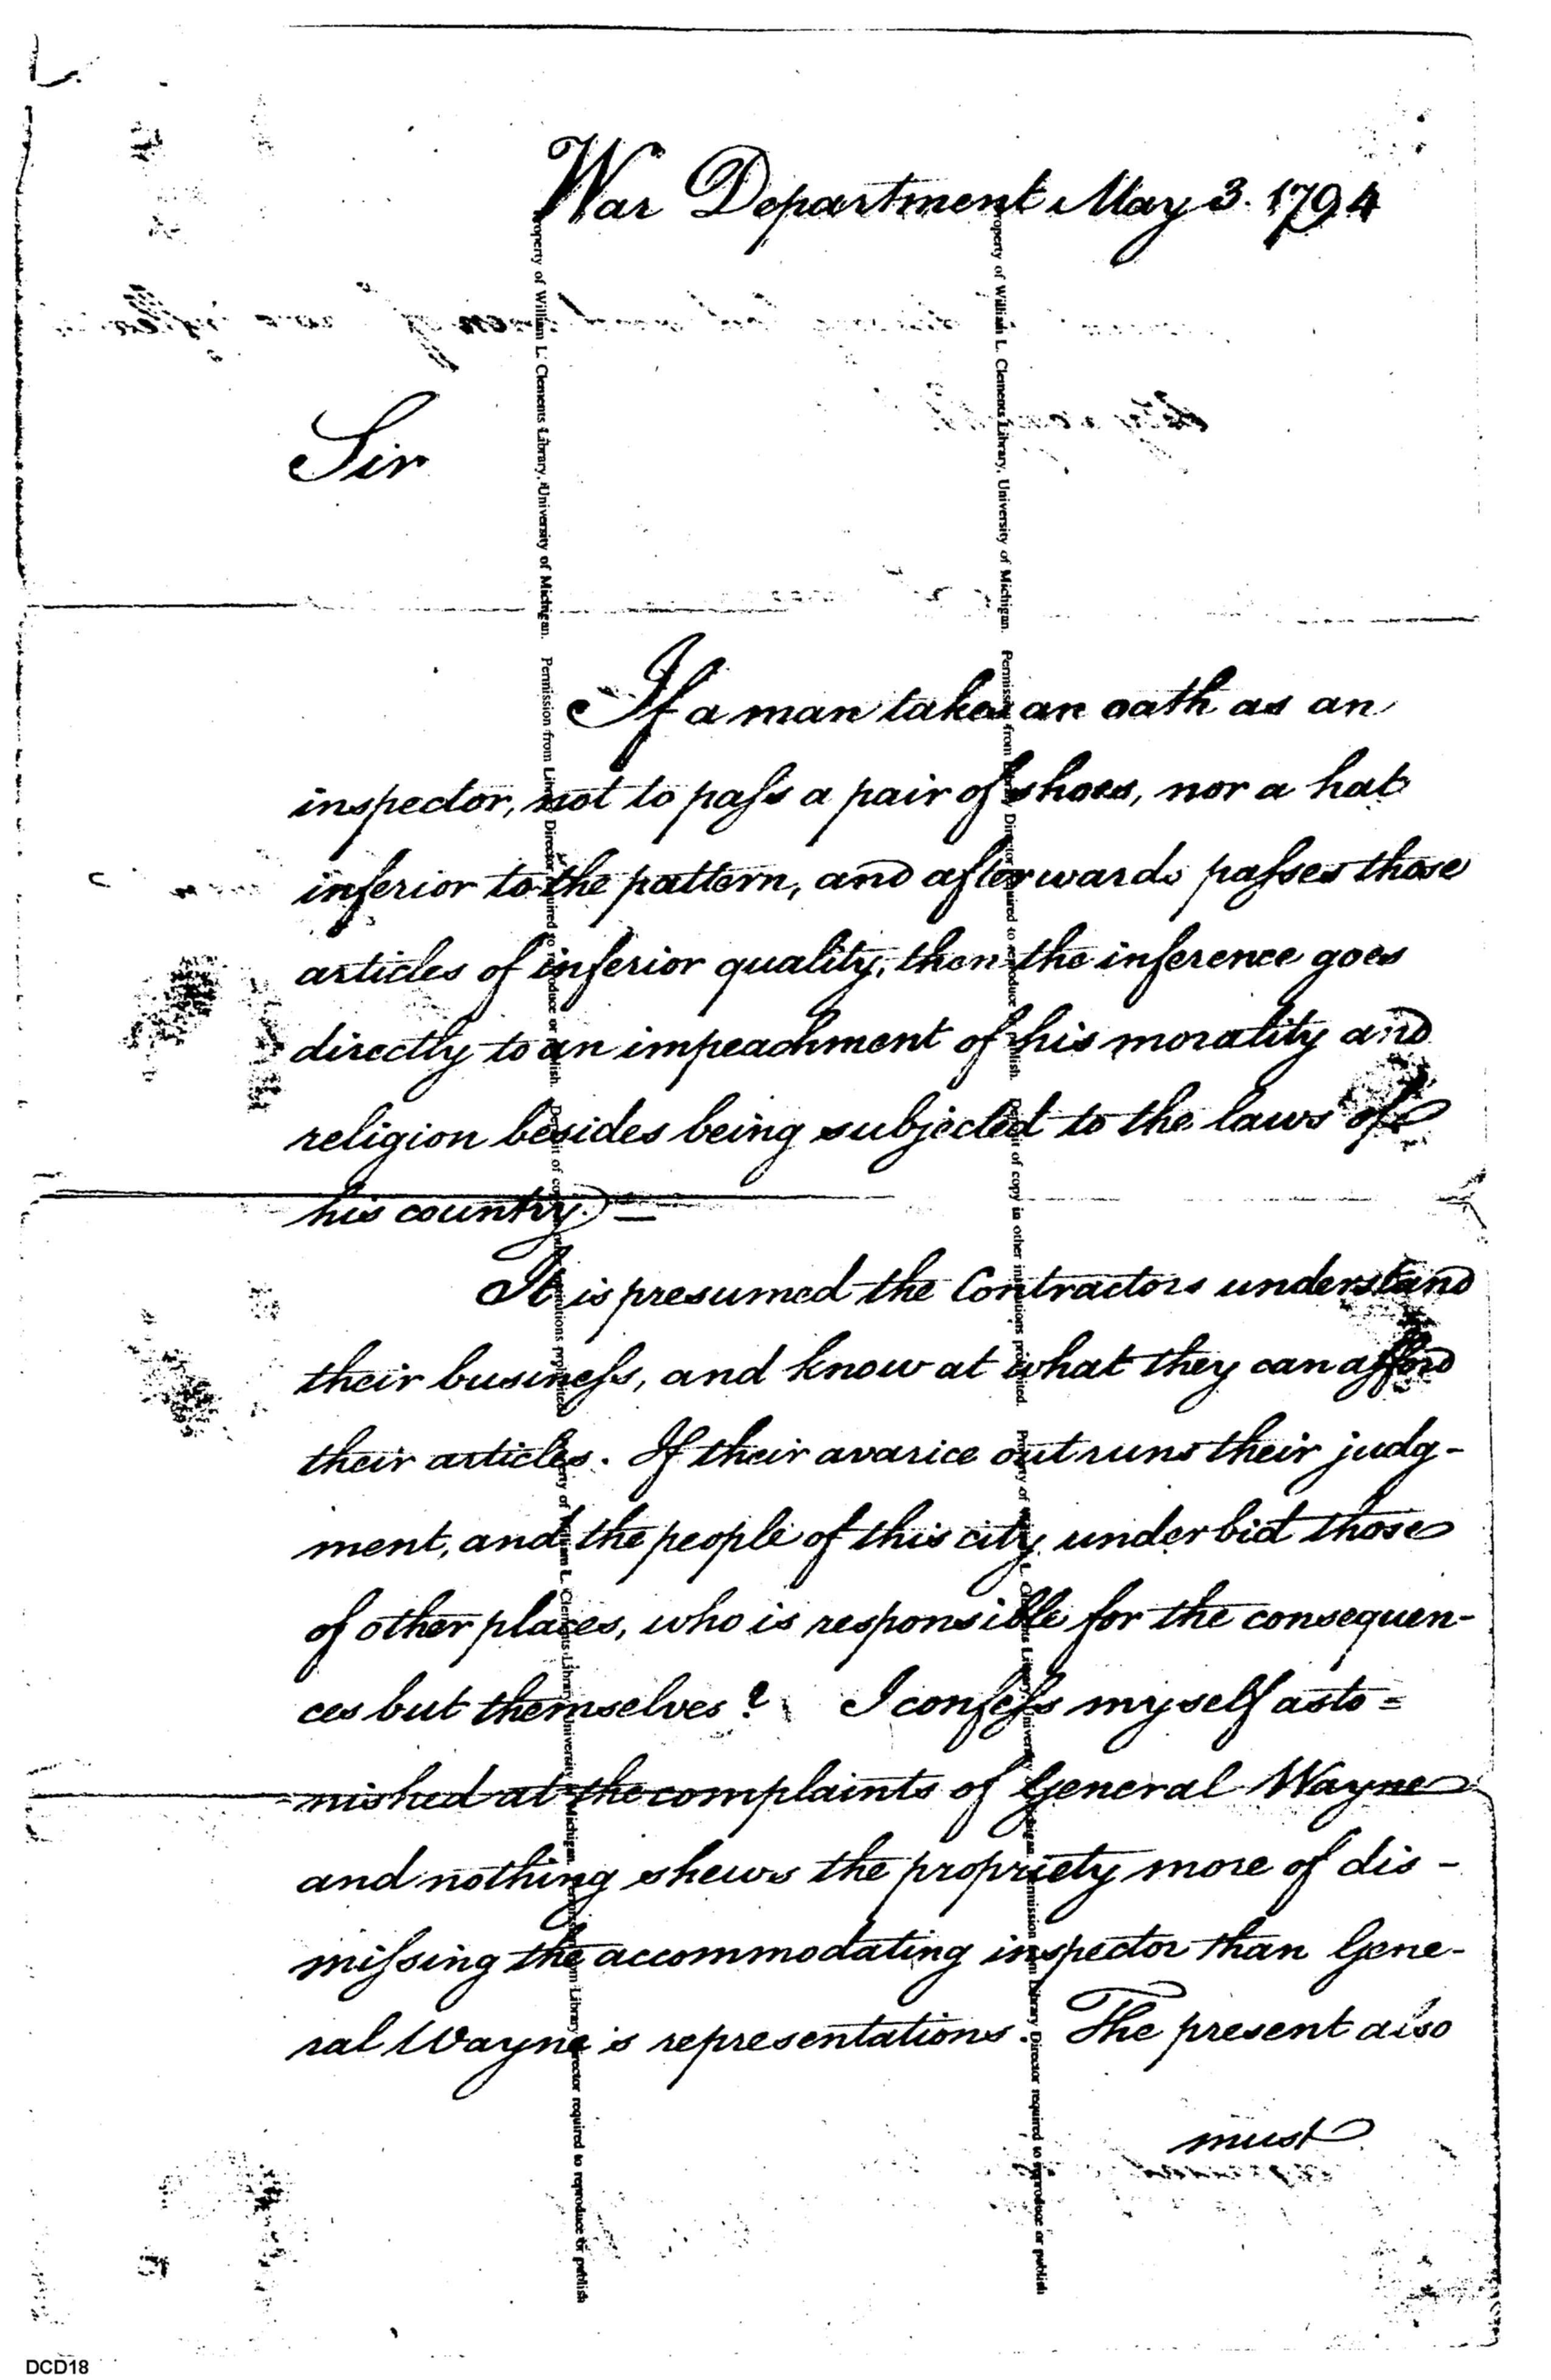 War Department May 3. 1794
Sir
If a man takes an oath as an
inspector, not to pass a pair of shoes, nor a hat
inferior to the pattern, and afterwards passes those
articles of inferior quality, then the inference goes
directly to an impeachment of his morality and
religion besides being subjected to the laws of
his country. =
It is presumed the Contractors understand
their business, and know at what they can afford
their articles. If their avarice outruns their judg-
ment, and the people of this city underbid those
of other places, who is responsible for the consequen-
ces but themselves? I confess myself asto=
nished at the complaints of General Wayne
and nothing shews the propriety more of dis-
missing the accommodating inspector than Gene-
ral Wayne's representations. The present also
must
Property of William L. Clements Library, University of Michigan. Permission from Library Director required to reproduce or publish. Deposit of copy in other institutions prohibited. Property of William L. Clements Library, University of Michigan. Permission from Library Director required to reproduce or publish
Property of William L. Clements Library, University of Michigan. Permission from Library Director required to reproduce or publish. Deposit of copy in other institutions prohibited. Property of William L. Clements Library, University of Michigan. Permission from Library Director required to reproduce or publish
DCD18